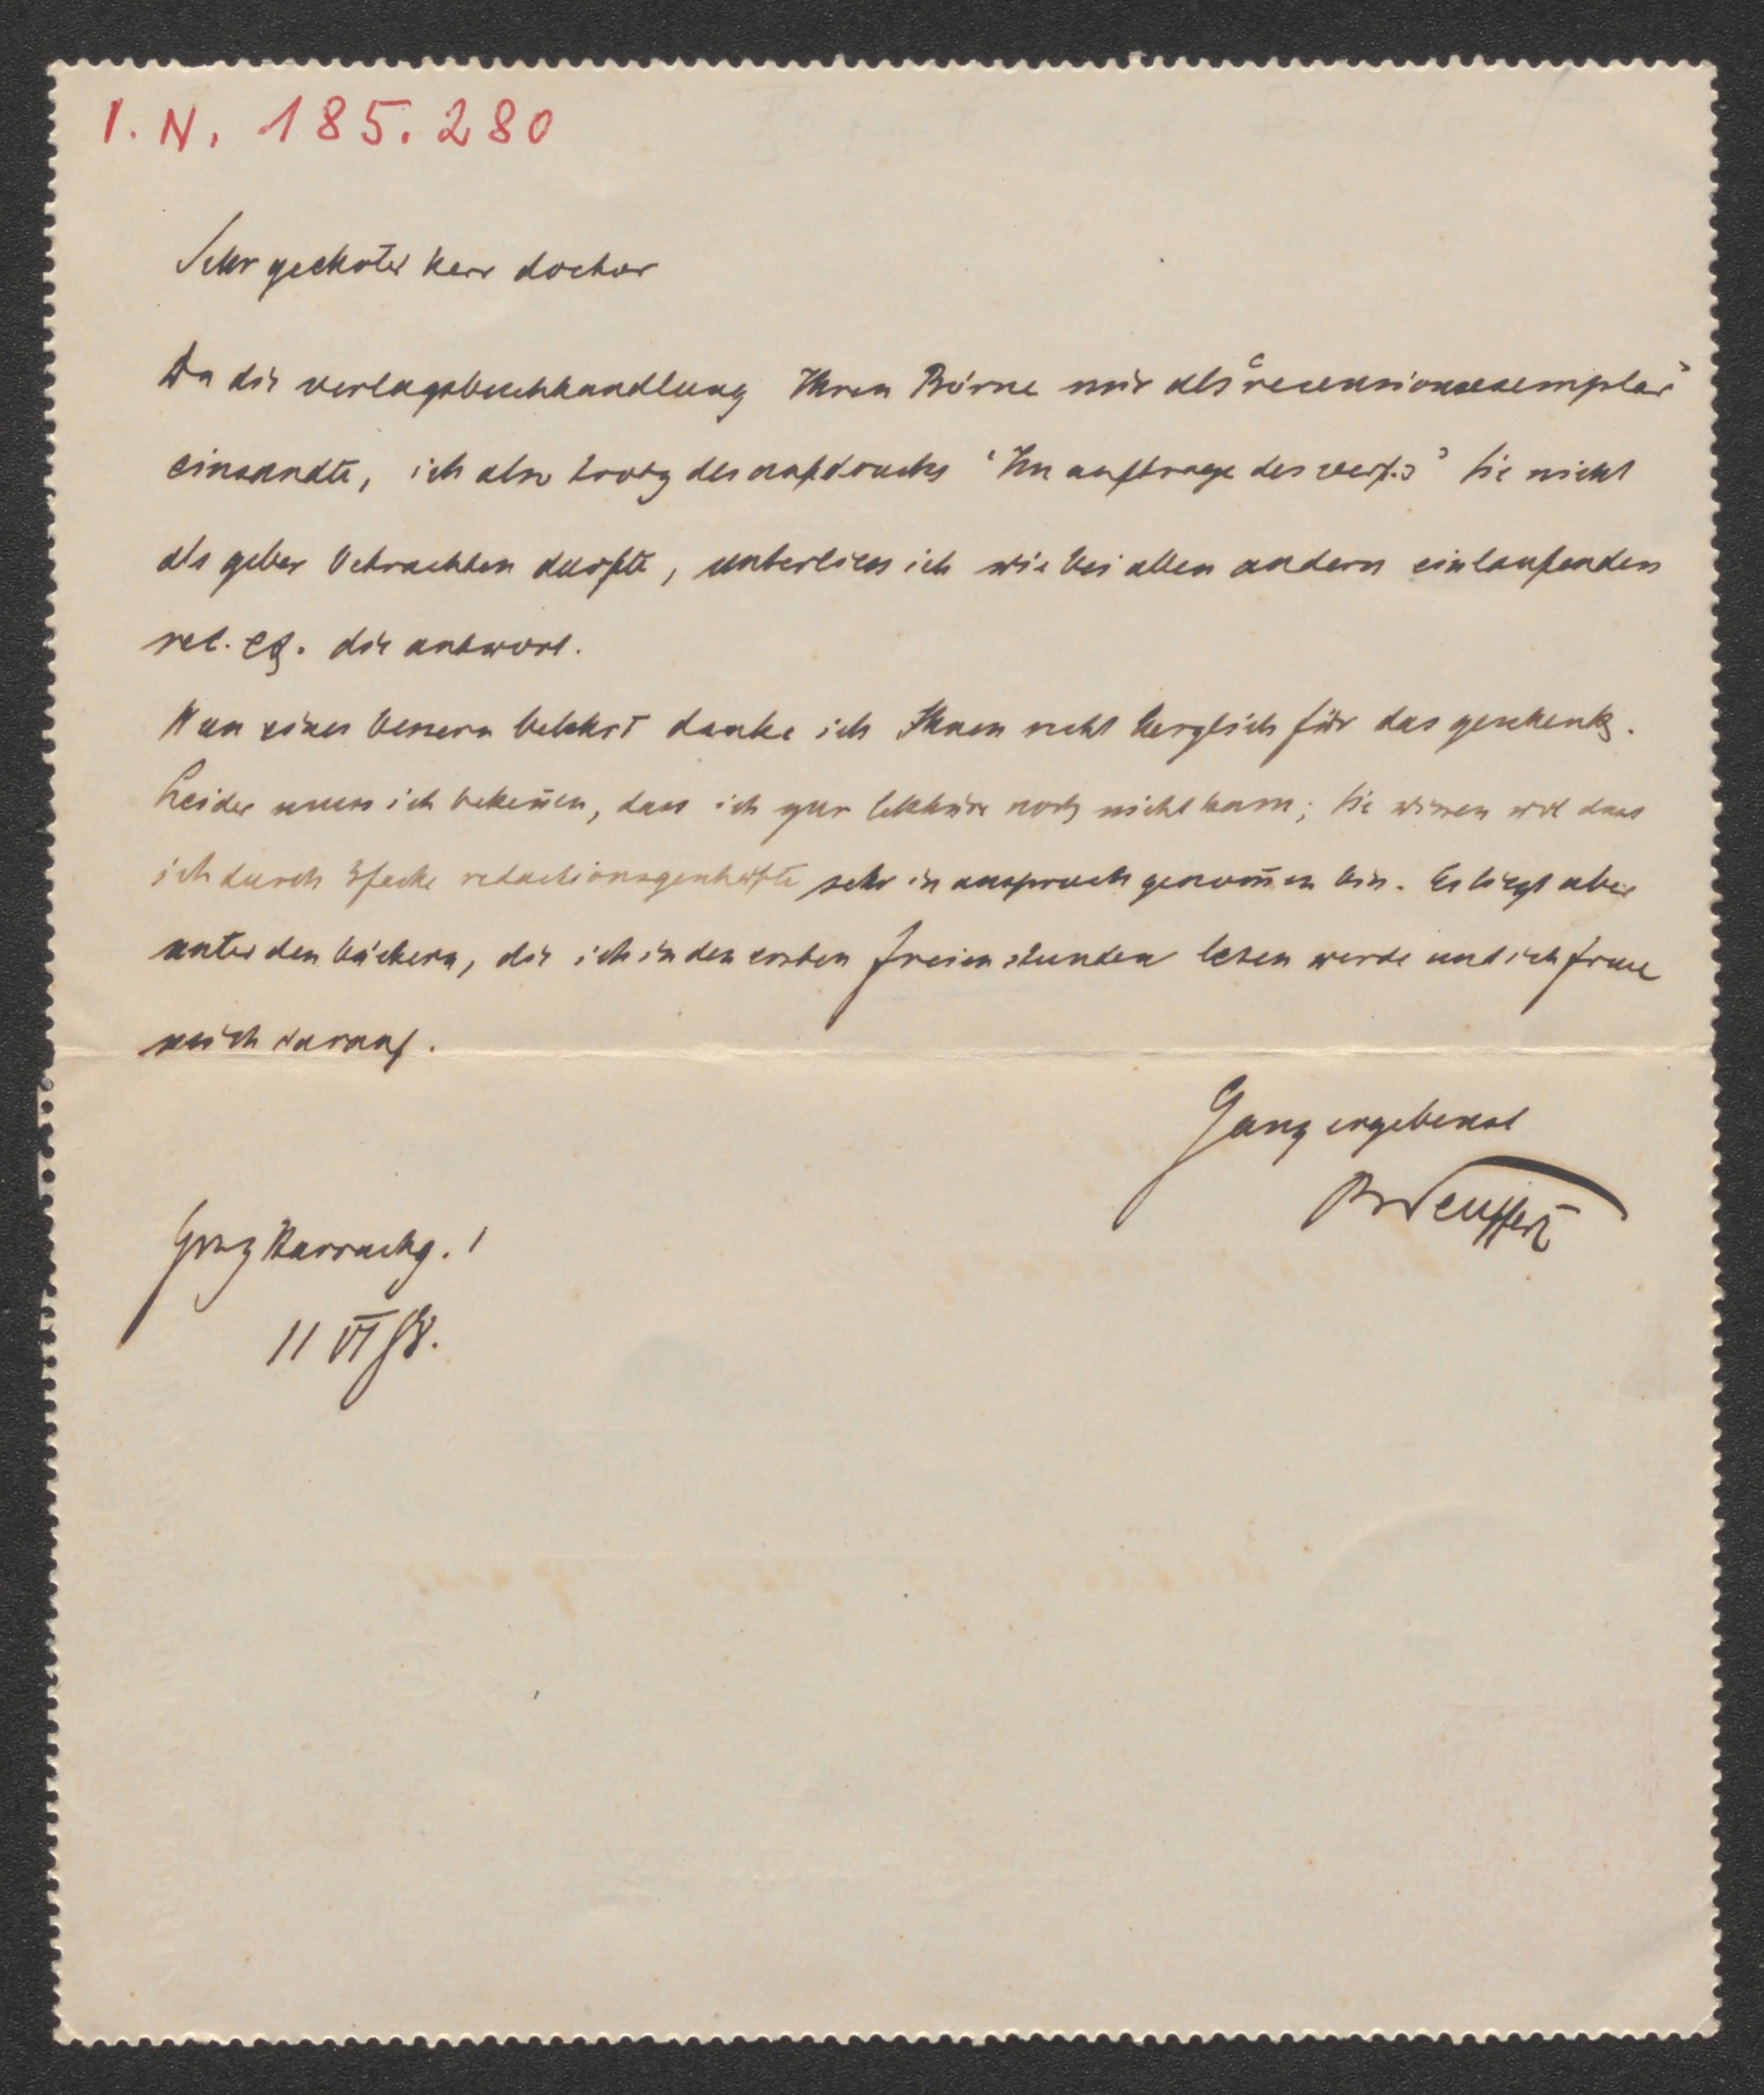 I. N. 185.280
Sehr geehrter herr doctor
Da die verlagsbuchhandlung Ihren Börne mir als "recensionsexemplar"
einsandte, ich also trotz des aufdrucks 'Im auftrage des verf.s' Sie nicht
als geber betrachten durfte, unterliess ich wie bei allen andern einlaufenden
rec. ex. die antwort.
Nun eines bessern belehrt danke ich Ihnen recht herzlich für das geschenk.
Leider muss ich bekeñen, dass ich zur lektüre noch nicht kam; Sie wissen wol dass
ich durch 3fache redactionsgeschäfte sehr in anspruch genom̃en bin. Es liegt aber
unter den büchern, die ich in den ersten freien stunden lesen werde und ich freue
mich darauf.
Ganz ergebenst
BSeuffert
Graz Harrachg. 1
11 VI 88.